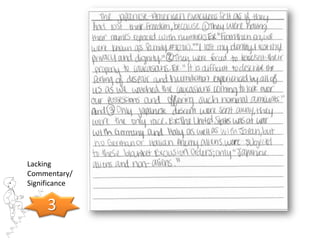 The Japanese-American evacuees felt as if they
had lost their freedom, because ① They were having
their names replaced with numbers. "From then on, we
were known as Family #10710." "I lost my identity
privacy and dignity." ② They were forced to
property to caucasians for "It is difficult to describe the
feeling of despair and humiliation experienced by all of
us as we watched the caucasians coming to look over
our possessions and offering such nominal amounts."
And ③ Only Japanese descent were sent away, they
were the only race. the United States was at war
with Germany and Italy as well as with Japan, but
no German or Italian Enemy aliens were subject
to these blanket exclusion orders; only "Japanese
aliens and non-aliens."
Lacking
Commentary/
Significance
3